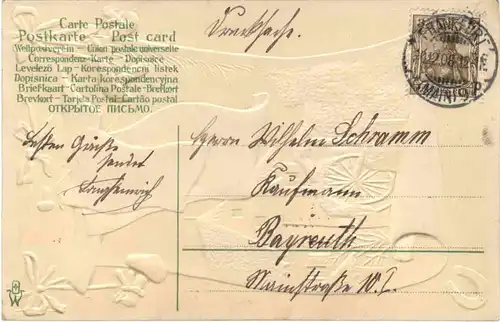 Carte Postale
Postkarte - Post card
Weltpostverein - Union postale universelle
Correspondenz-Karte - Dopisnice
Levelező Lap - Korespondencni listek
Dopisnica - Karta korespondencyjna
Briefkaart - Cartolina Postale - Brefkort
Brevkort - Tarjeta Postal - Cartão postal
ОТКРЫТОЕ ПИСЬМО.
Drucksache.
FRANKFURT
12.08.
(MAIN) 9
Besten Grüße
sendet
Herrn Wilhelm Schramm
Kaufmann
Bayreuth
Mainstraße
W